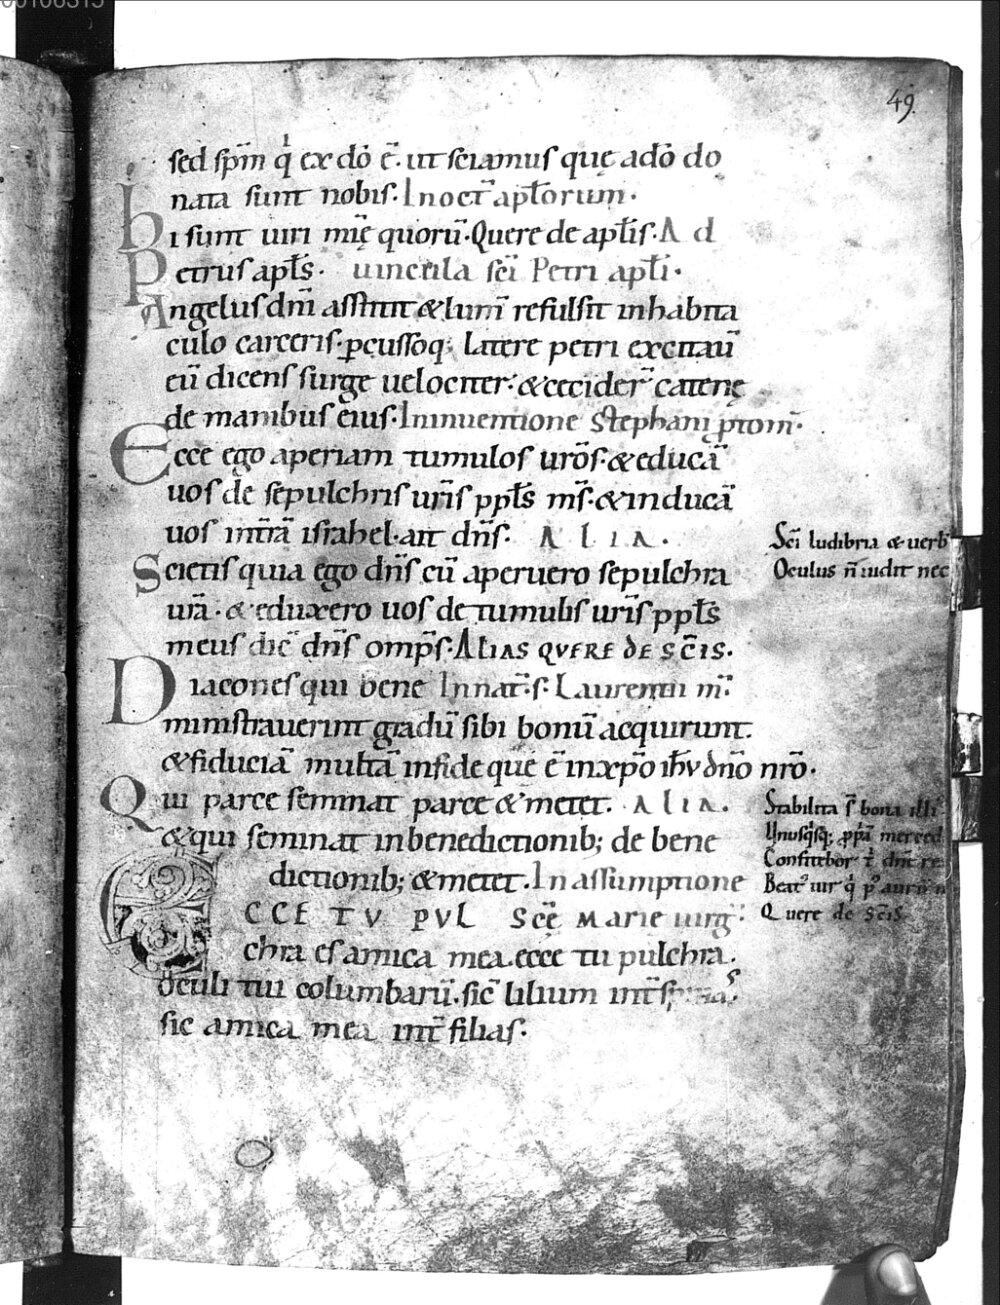 49.
sed spm̄ q ex dō ē. ut sciamus quę a dō do
nata sunt nobis. In oct̄ aptōrum.
hi sunt uiri mīę quorū. Quere de aptīs. Ad
Petrus aptś. uincula sc̄i Petri aptī.
Angelus dnī astitit & lum̄ refulsit in habita
culo carceris. pcussoq; latere petri excitaū
eū dicens surge uelociter. & cecider̄ catenę
de manibus eius. In inuentione Stephani ptom̄.
Ecce ego aperiam tumulos urōs. & educā
uos de sepulchris ur̄is ppłs ms̄. & inducā
uos in tr̄ā israhel. ait dn̄s. ALIA.
Scietis quia ego dn̄s cū aperuero sepulchra
ur̄a. & eduxero uos de tumulis ur̄is ppłs
meus dic̄ dn̄s omp̄s. ALIAS QVERE DE SC̄IS.
Diacones qui bene In nat̄. s. Laurentii m̄.
ministrauerint gradū sibi bonū acquirunt.
& fiduciā multā in fide que ē in xp̄o ihū dn̄o nr̄o.
Qui parce seminat parce & metet. ALIA.
& qui seminat in benedictionib; de bene
dictionib; & metet. In assumptione
ECCE TV PVL Sc̄ę Marie uirḡ.
chra es amica mea. ecce tu pulchra.
oculi tui columbarū. sic̄ lilium int̄
sic amica mea int̄ filias.
Sc̄i ludibria & uerb
Oculus n̄ uidit nec
Stabilita s̄ bona illi
Unusq̄sq; p̄p̄ā merced
Confitebor t̄ dn̄e re
Beat' uir q p
Quere de sc̄is.